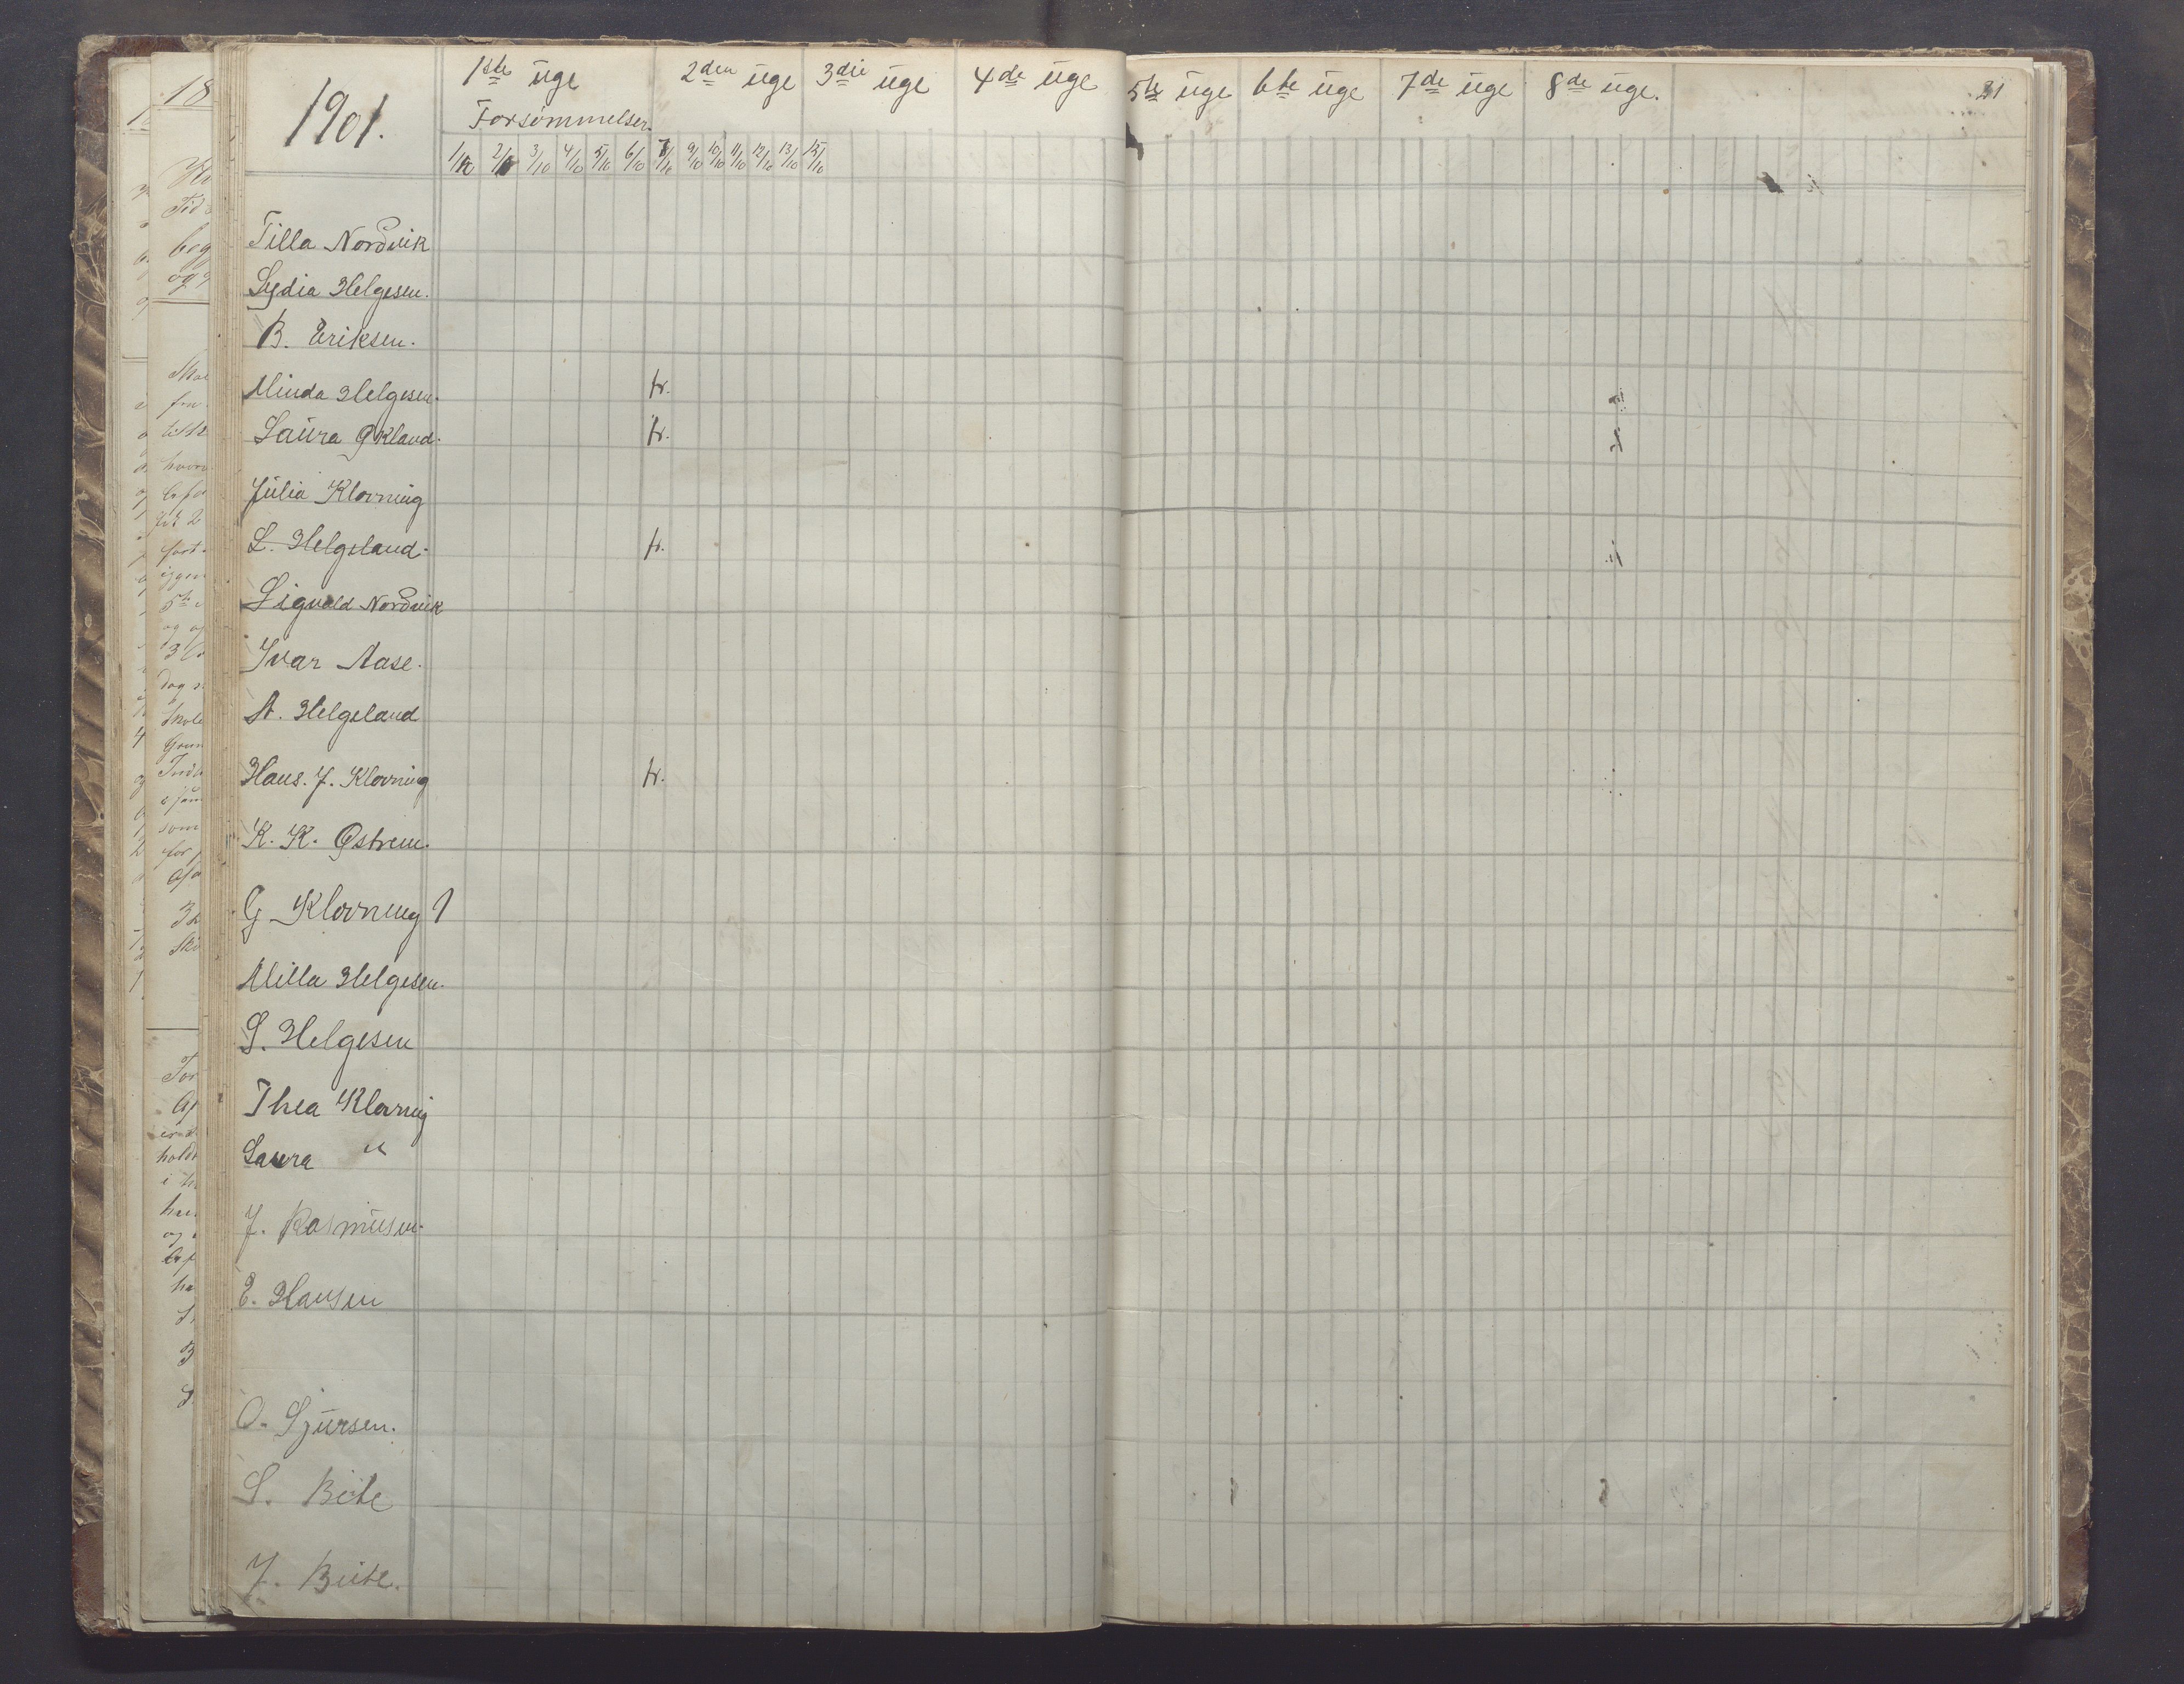 1901.
1ste uge 2den uge 3die uge 4de uge 5te uge 6te uge 7de uge 8de uge. 21
Forsømmelser
1/10 2/10 3/10 4/10 5/10 6/10 7/10 9/10 10/10 11/10 12/10 13/10 15/10
Tilla Nordvik
Lydia Helgesen.
B. Eriksen.
Minda Helgesen. fr.
Laura Økland. fr.
Julia Klovning
L. Helgeland. fr.
Sigvald Nordvik
Ivar Aase.
A. Helgeland
Hans. J. Klovning fr.
K. K. Østrem.
G Klovning
Milla Helgesen.
S. Helgesen
Thea Klovning
Laura "
J. Rasmusen.
E. Hansen
O. Sjursen.
S.
J.